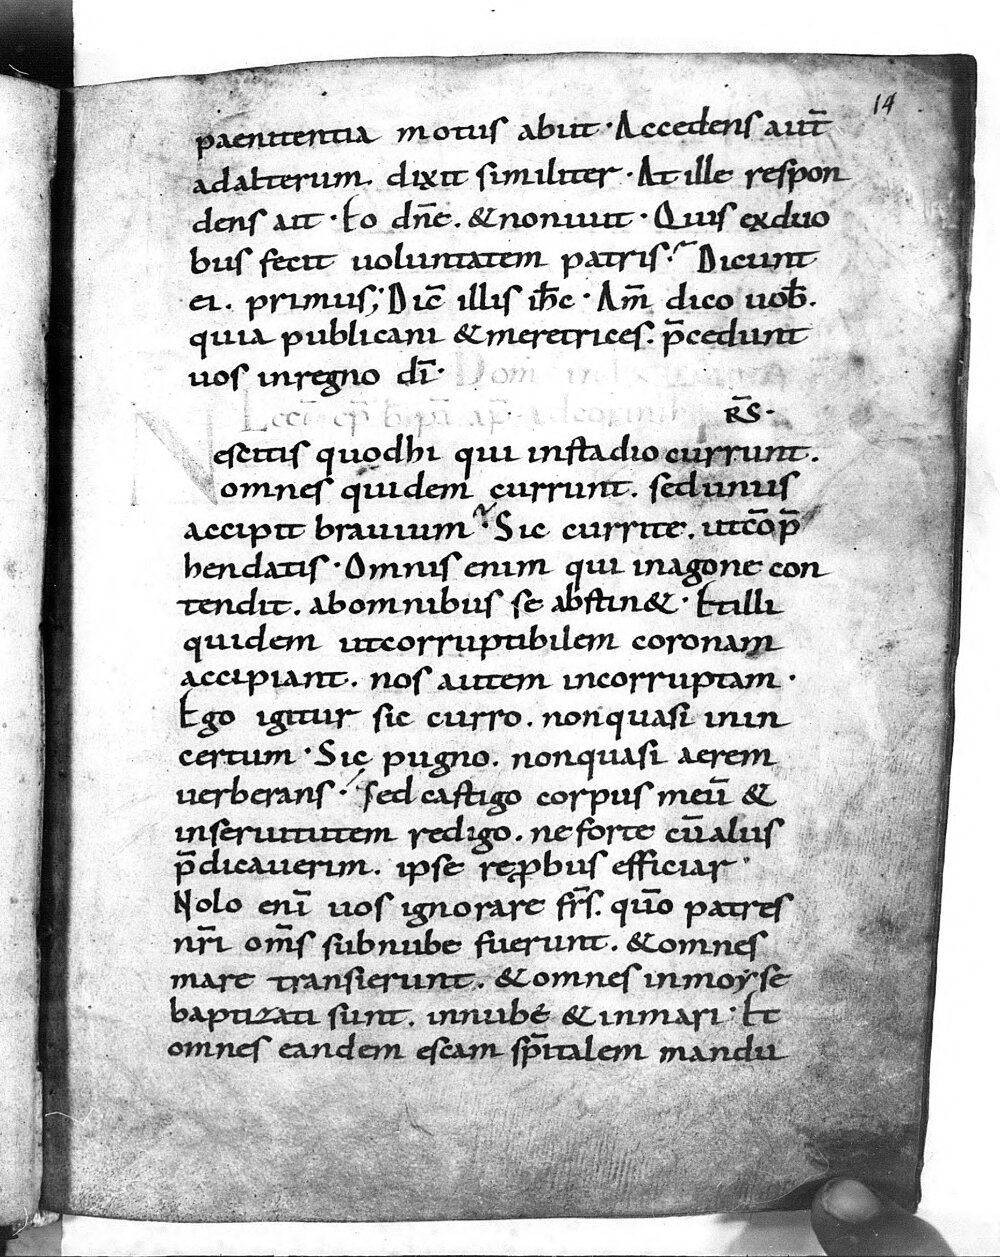 14
paenitentia motus abiit · Accedens aut̄
adalterum. dixit similiter · At ille respon
dens ait · Eo dn̄e. & non iuit · Quis exduo
bus fecit uoluntatem patris · Dicunt
ei. primus; Dic̄ illis ih̄c · Am̄ dico uob̄.
quia publicani & meretrices. p̄cedunt
uos inregno dī·
Lecc̄ ep̄ b̄ pa ap̄ adcorinth R̄S·
Nescitis quodhi qui instadio currunt.
omnes quidem currunt. sedunus
accipit brauium · Sic currite. utcōp̄
hendatis · Omnis enim qui inagone con
tendit. abomnibus se abstin& · Etilli
quidem utcorruptibilem coronam
accipiant. nos autem incorruptam ·
Ego igitur sic curro. nonquasi inin
certum · Sic pugno. nonquasi aerem
uerberans · Sed castigo corpus meū &
inseruitutem redigo. ne forte cū aliis
p̄dicauerim. ipse reꝓbus efficiar ·
Nolo enī uos ignorare fr̄s. quō patres
nr̄i om̄s subnube fuerunt. & omnes
mare transierunt. & omnes inmoyse
baptizati sunt. innube & inmari · Et
omnes eandem escam sp̄italem mandu